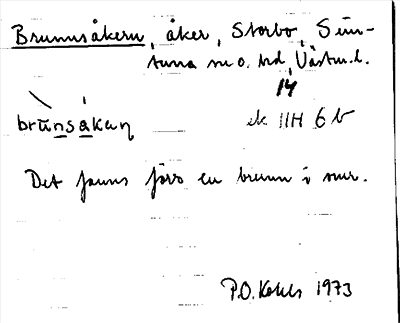 Brunnsåkern, åker, Storbo, Simtuna sn o. hd, Västm.l.
14
brunsåkaɳ ek 11H 6b
Det fanns förr en brunn i snr.
P.O. Kohls 1973